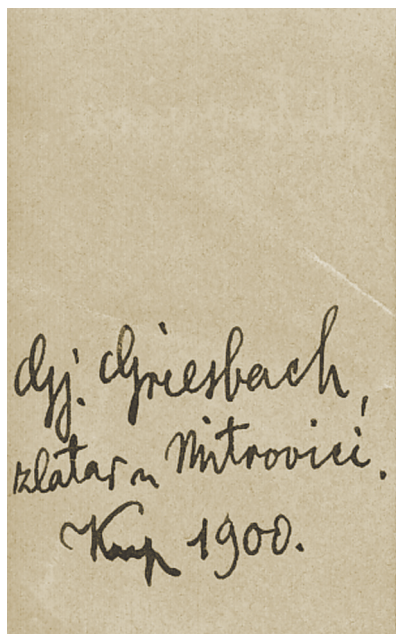 Gj. Griesbach,
zlatar u Mitrovici.
Kup 1900.